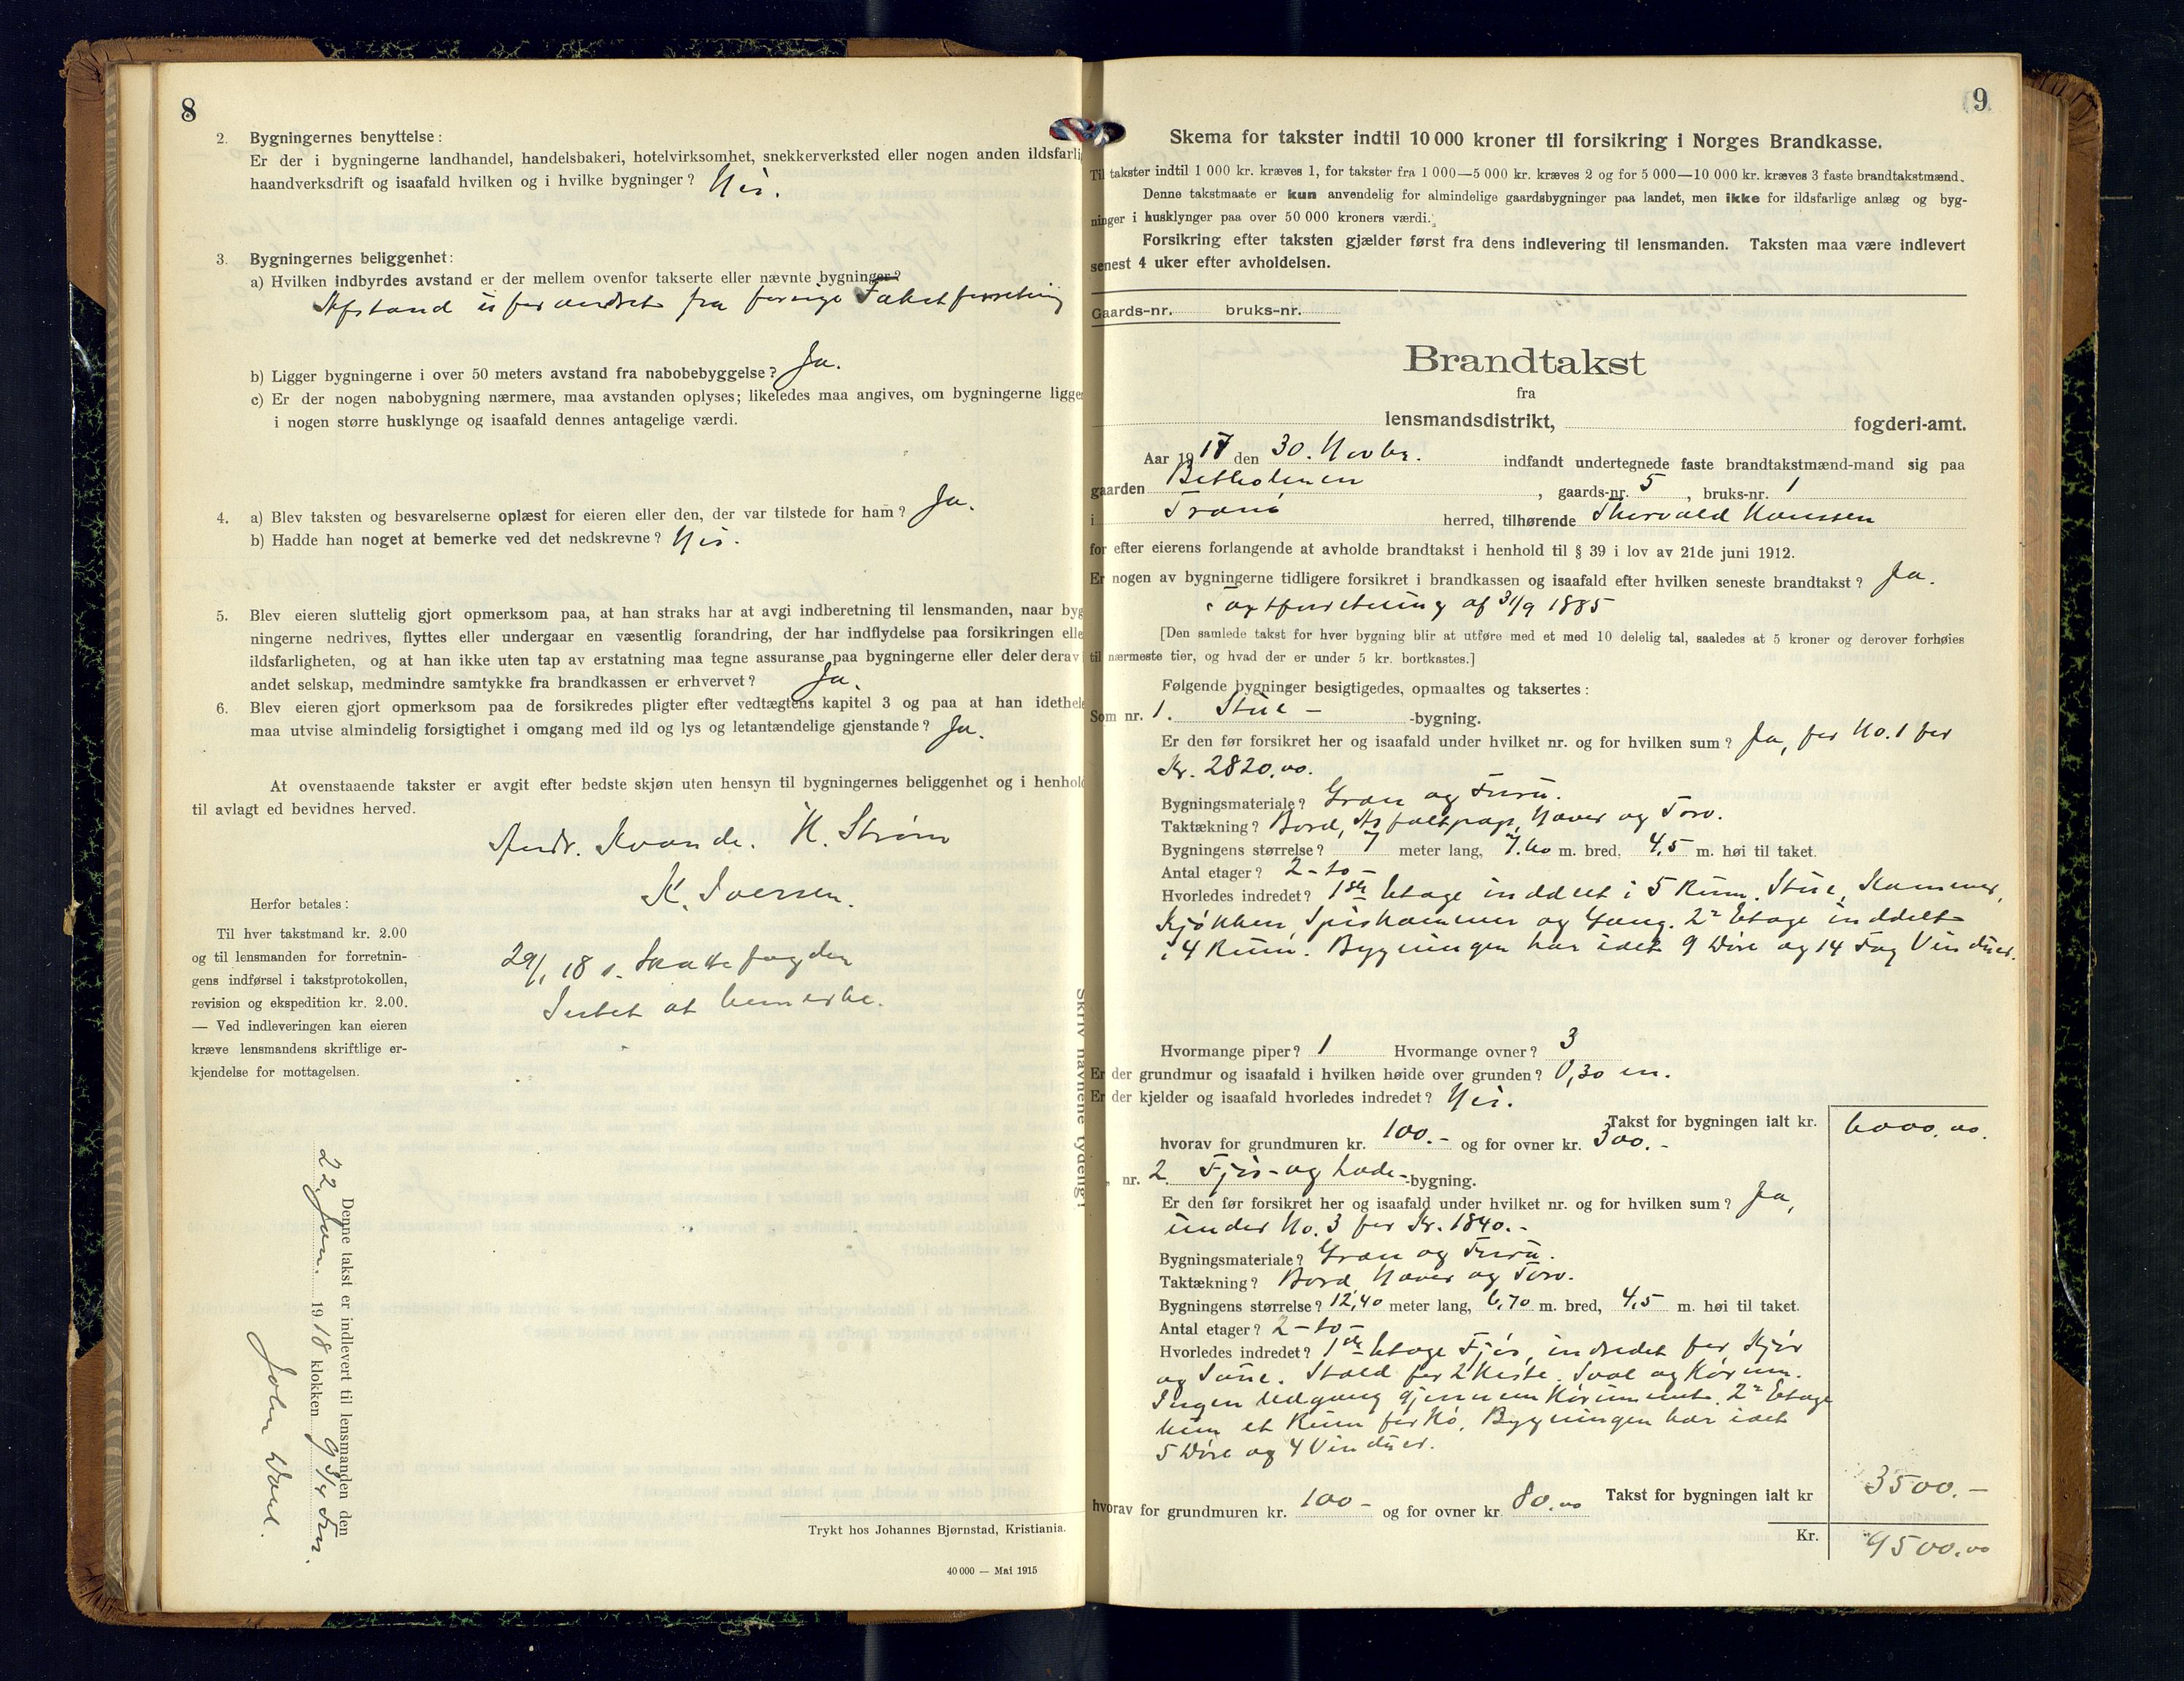 8
2. Bygningernes benyttelse:
Er der i bygningerne landhandel, handelsbakeri, hotelvirksomhet, snekkerverksted eller nogen anden ildsfarli
haandverksdrift og isaafald hvilken og i hvilke bygninger? Nei.
3. Bygningernes beliggenhet:
a) Hvilken indbyrdes avstand er der mellem ovenfor takserte eller nævnte bygninger?
Afstand uforandret fra forrige Takstforretning
b) Ligger bygningerne i over 50 meters avstand fra nabobebyggelse? Ja.
c) Er der nogen nabobygning nærmere, maa avstanden oplyses; likeledes maa angives, om bygningerne ligge
i nogen større husklynge og isaafald dennes antagelige værdi.
4. a) Blev taksten og besvarelserne oplæst for eieren eller den, der var tilstede for ham? Ja.
b) Hadde han noget at bemerke ved det nedskrevne? Nei.
5. Blev eieren sluttelig gjort opmerksom paa, at han straks har at avgi indberetning til lensmanden, naar byg
ningerne nedrives, flyttes eller undergaar en væsentlig forandring, der har indflydelse paa forsikringen elle
ildsfarligheten, og at han ikke uten tap av erstatning maa tegne assuranse paa bygningerne eller deler derav i
andet selskap, medmindre samtykke fra brandkassen er erhvervet? Ja.
6. Blev eieren gjort opmerksom paa de forsikredes pligter efter vedtægtens kapitel 3 og paa at han idethele
maa utvise almindelig forsigtighet i omgang med ild og lys og letantændelige gjenstande? Ja.
At ovenstaaende takster er avgit efter bedste skjøn uten hensyn til bygningernes beliggenhet og i henhold
til avlagt ed bevidnes herved.
Andr. Kvande. H. Strøm
K. Iversen.
29/1 18 s. Skattefogden
Intet at bemerke.
Herfor betales:
Til hver takstmand kr. 2.00
og til lensmanden for forretnin-
gens indførsel i takstprotokollen,
revision og ekspedition kr. 2.00.
— Ved indleveringen kan eieren
kræve lensmandens skriftlige er-
kjendelse for mottagelsen.
Denne takst er indlevert til lensmanden den
22. Jan. 1918 klokken 9 3/4 Fm.
John
Trykt hos Johannes Bjørnstad, Kristiania.
40 000 — Mai 1915
Skriv navnene tydelig!
9
Skema for takster indtil 10 000 kroner til forsikring i Norges Brandkasse.
Til takster indtil 1 000 kr. kræves 1, for takster fra 1 000—5 000 kr. kræves 2 og for 5 000—10 000 kr. kræves 3 faste brandtakstmænd.
Denne takstmaate er kun anvendelig for almindelige gaardsbygninger paa landet, men ikke for ildsfarlige anlæg og byg-
ninger i husklynger paa over 50 000 kroners værdi.
Forsikring efter taksten gjælder først fra dens indlevering til lensmanden. Taksten maa være indlevert
senest 4 uker efter avholdelsen.
Gaards-nr. bruks-nr.
Brandtakst
fra
lensmandsdistrikt, fogderi-amt.
Aar 1917 den 30. Novbr. indfandt undertegnede faste brandtakstmænd-mand sig paa
gaarden Betholmen, gaards-nr. 5, bruks-nr. 1
i Tranø herred, tilhørende Thorvald Hanssen
for efter eierens forlangende at avholde brandtakst i henhold til § 39 i lov av 21de juni 1912.
Er nogen av bygningerne tidligere forsikret i brandkassen og isaafald efter hvilken seneste brandtakst? Ja.
Taxtforretning af 31/9 1885
[Den samlede takst for hver bygning blir at utføre med et med 10 delelig tal, saaledes at 5 kroner og derover forhøies
til nærmeste tier, og hvad der er under 5 kr. bortkastes.]
Følgende bygninger besigtigedes, opmaaltes og taksertes:
Som nr. 1. Stue- -bygning.
Er den før forsikret her og isaafald under hvilket nr. og for hvilken sum? Ja, for No. 1 for
Kr. 2820.00.
Bygningsmateriale? Gran og Furu.
Taktækning? Bord, Asfaltpap, Næver og Torv.
Bygningens størrelse? 7 meter lang, 7.60 m. bred, 4,5 m. høi til taket.
Antal etager? 2 - to -
Hvorledes indredet? 1ste Etage inddelt i 5 Rum. Stue, Kammer,
Kjøkken, Spiskammer og Gang. 2n Etage inddelt
i 4 Rum. Bygningen har ialt 9 Døre og 14 Fag Vinduer.
Hvormange piper? 1 Hvormange ovner? 3
Er der grundmur og isaafald i hvilken høide over grunden? 0,30 m.
Er der kjelder og isaafald hvorledes indredet? Nei.
Takst for bygningen ialt kr. 6000.00.
hvorav for grundmuren kr. 100.- og for ovner kr. 300.-
nr. 2. Fjøs- og Lade- -bygning.
Er den før forsikret her og isaafald under hvilket nr. og for hvilken sum? Ja,
under No. 3 for Kr. 1840.-
Bygningsmateriale? Gran og Furu.
Taktækning? Bord Næver og Torv.
Bygningens størrelse? 12,40 meter lang, 6,70 m. bred, 4,5 m. høi til taket.
Antal etager? 2 - to -
Hvorledes indredet? 1ste Etage Fjøs, indredet for Kjør
og Saue. Stald for 2 Heste. Sval og Hørum.
Ingen Udgang gjennem Hørummet. 2n Etage
kun et Rum for Hø. Bygningen har ialt
5 Døre og 4 Vinduer.
Takst for bygningen ialt kr 3500.-
hvorav for grundmuren kr. 100- og for ovner kr. 80.00
Kr. 9500.00